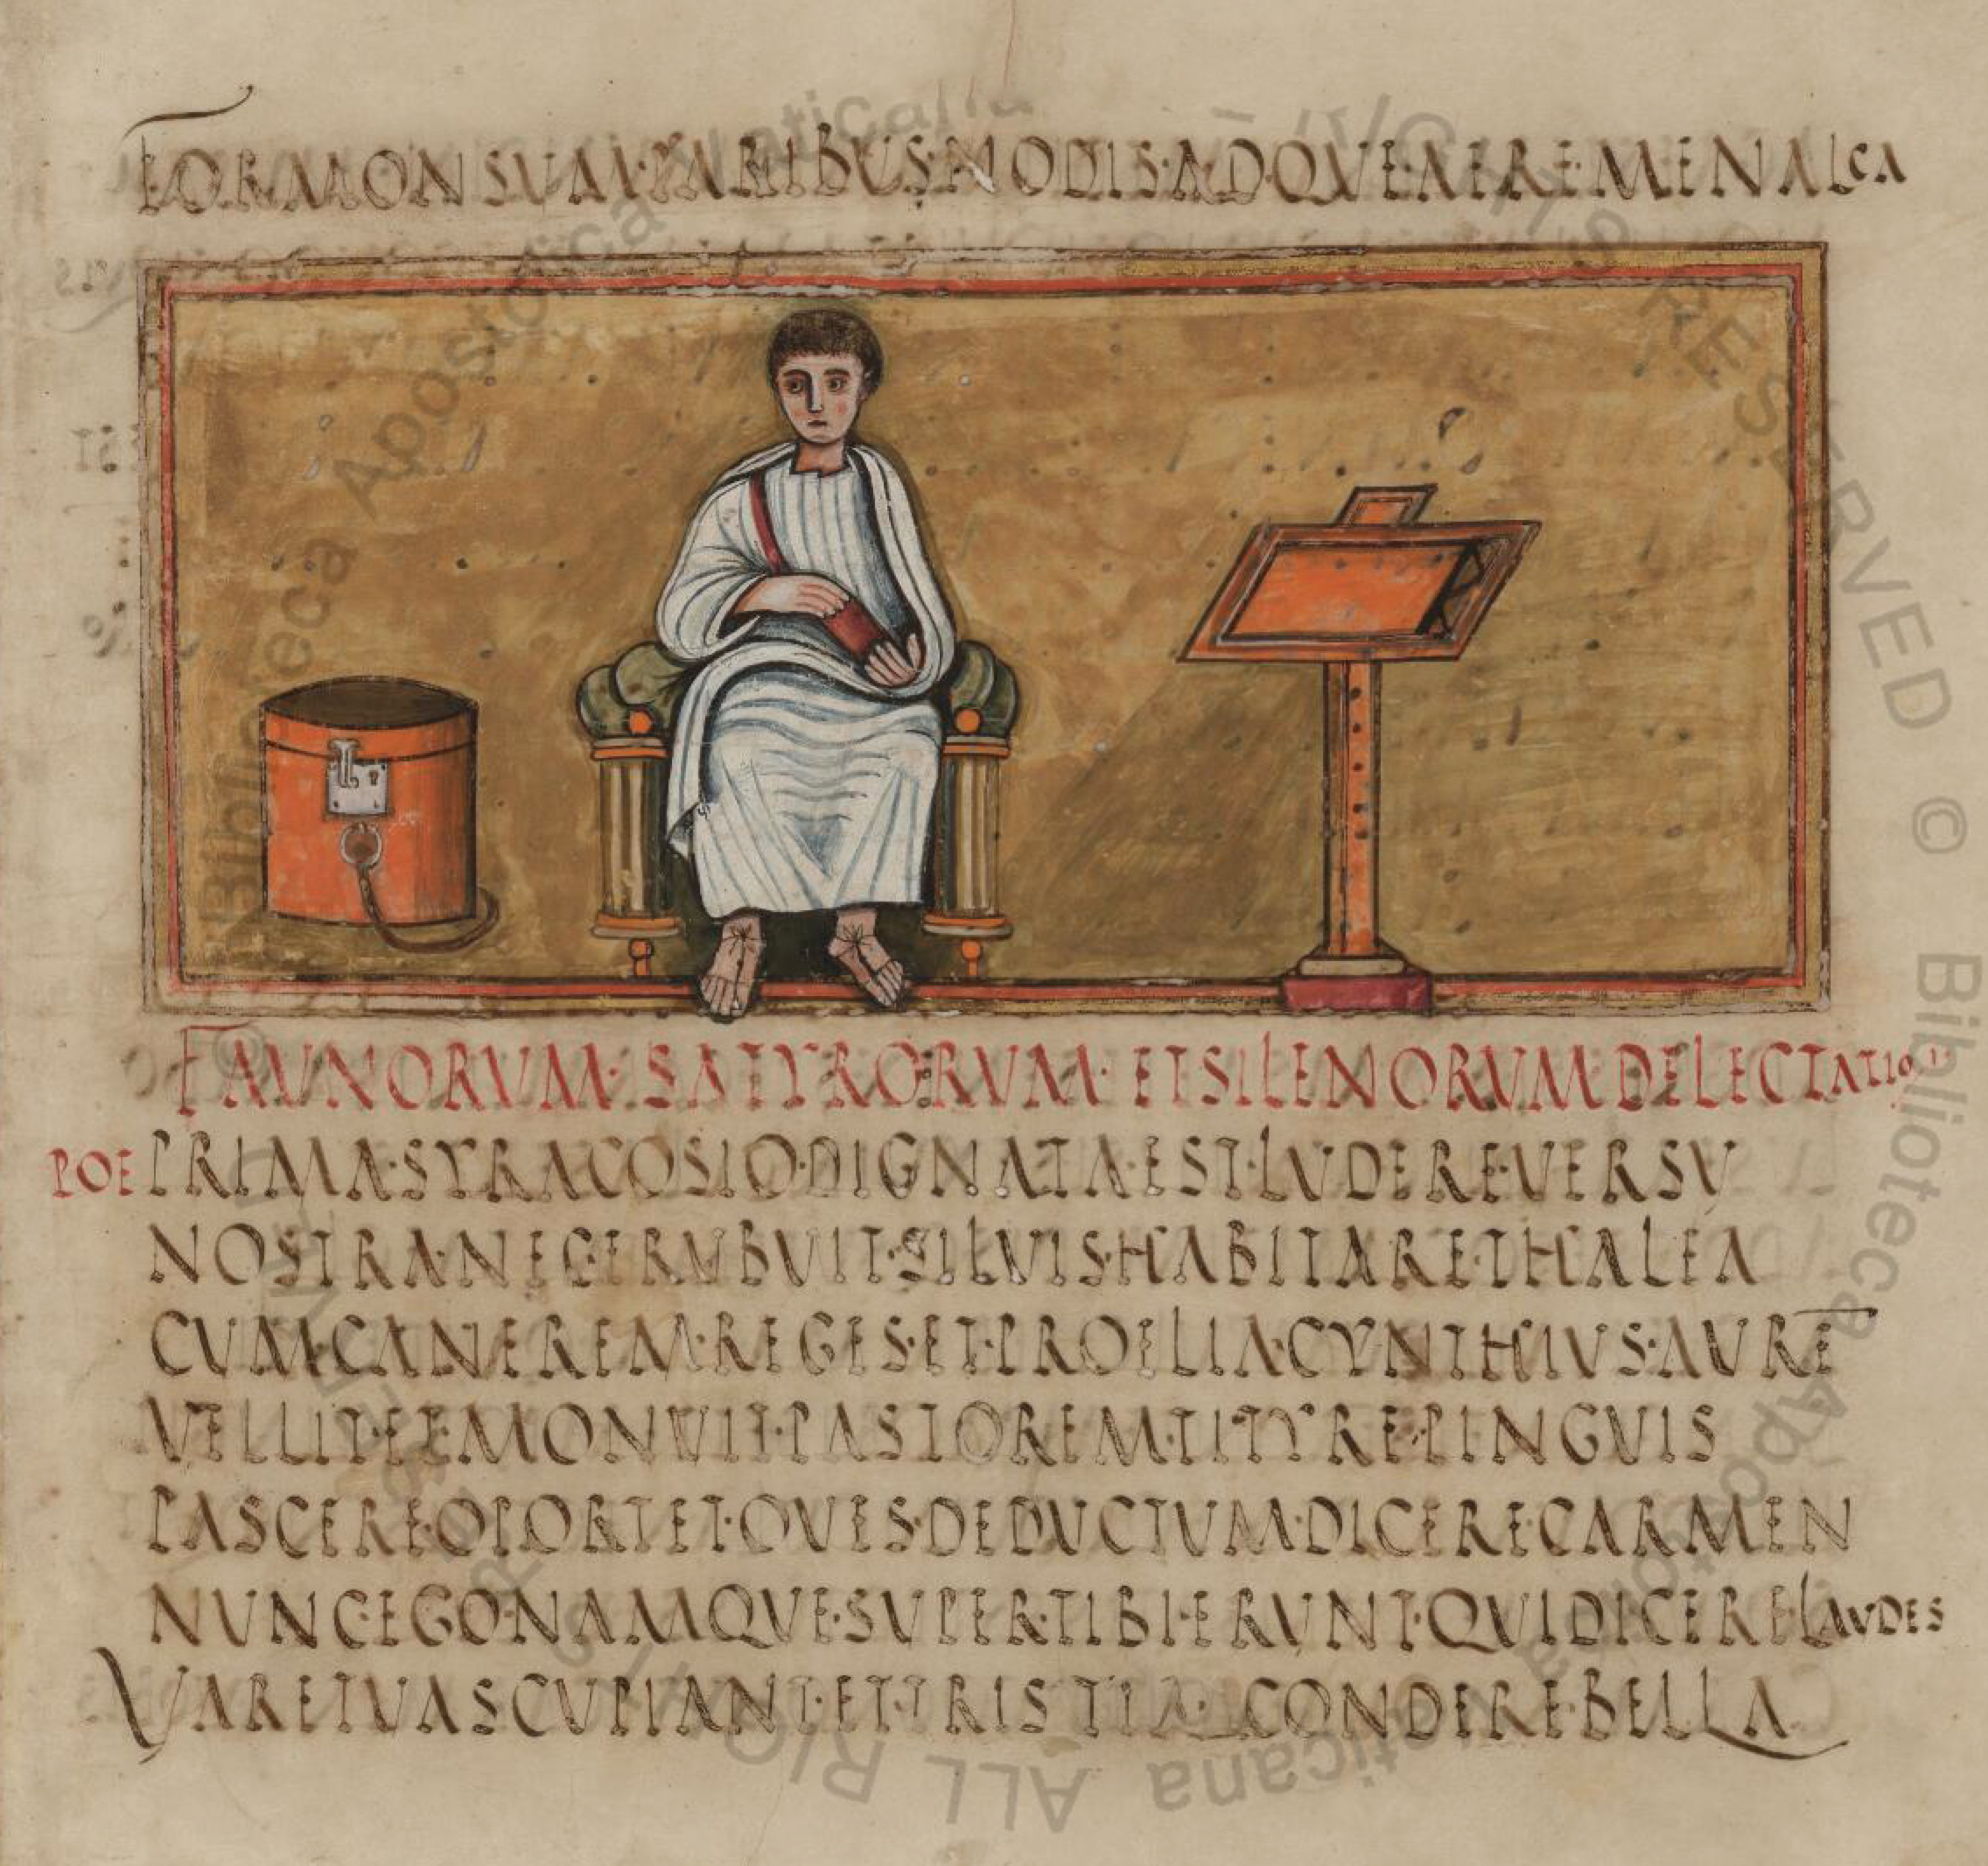 FORMONSVM·PARIBVS·NODIS·ADQVE·AERE·MENALCA
FAVNORVM·SATYRORVM·ETSILENORVMDELECTATIO
POE PRIMA·SYRACOSIO·DIGNATA·EST·LVDERE·VERSV
NOSTRA·NEC·ERVBVIT·SILVIS·HABITARE·THALEA
CVM·CANEREM·REGES·ET·PROELIA·CYNTHIVS·AVRE
VELLIT·ET·MONVIT·PASTOREM·TITYRE·PINGVIS
PASCERE·OPORTET·OVES·DEDVCTVM·DICERE·CARMEN
NVNC·EGO·NAMQVE·SVPER·TIBI·ERVNT·QVIDICERELAVDES
VARETVAS CVPIANT·ET·TRISTIA·CONDERE·BELLA
© Biblioteca Apostolica Vaticana
ALL RIGHTS RESERVED
© Biblioteca Apostolica Vaticana ALL RIGHTS RESERVED